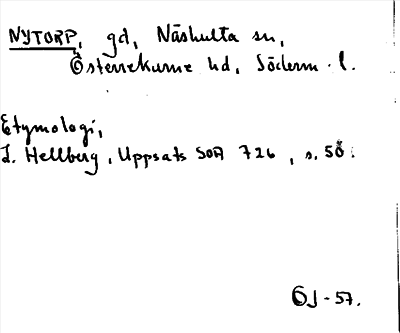 NYTORP, gd, Näshulta sn,
Österrekarne hd, Söderm. l.
Etymologi,
L. Hellberg, Uppsats SOA 726, s. 58.
ÖJ-57.